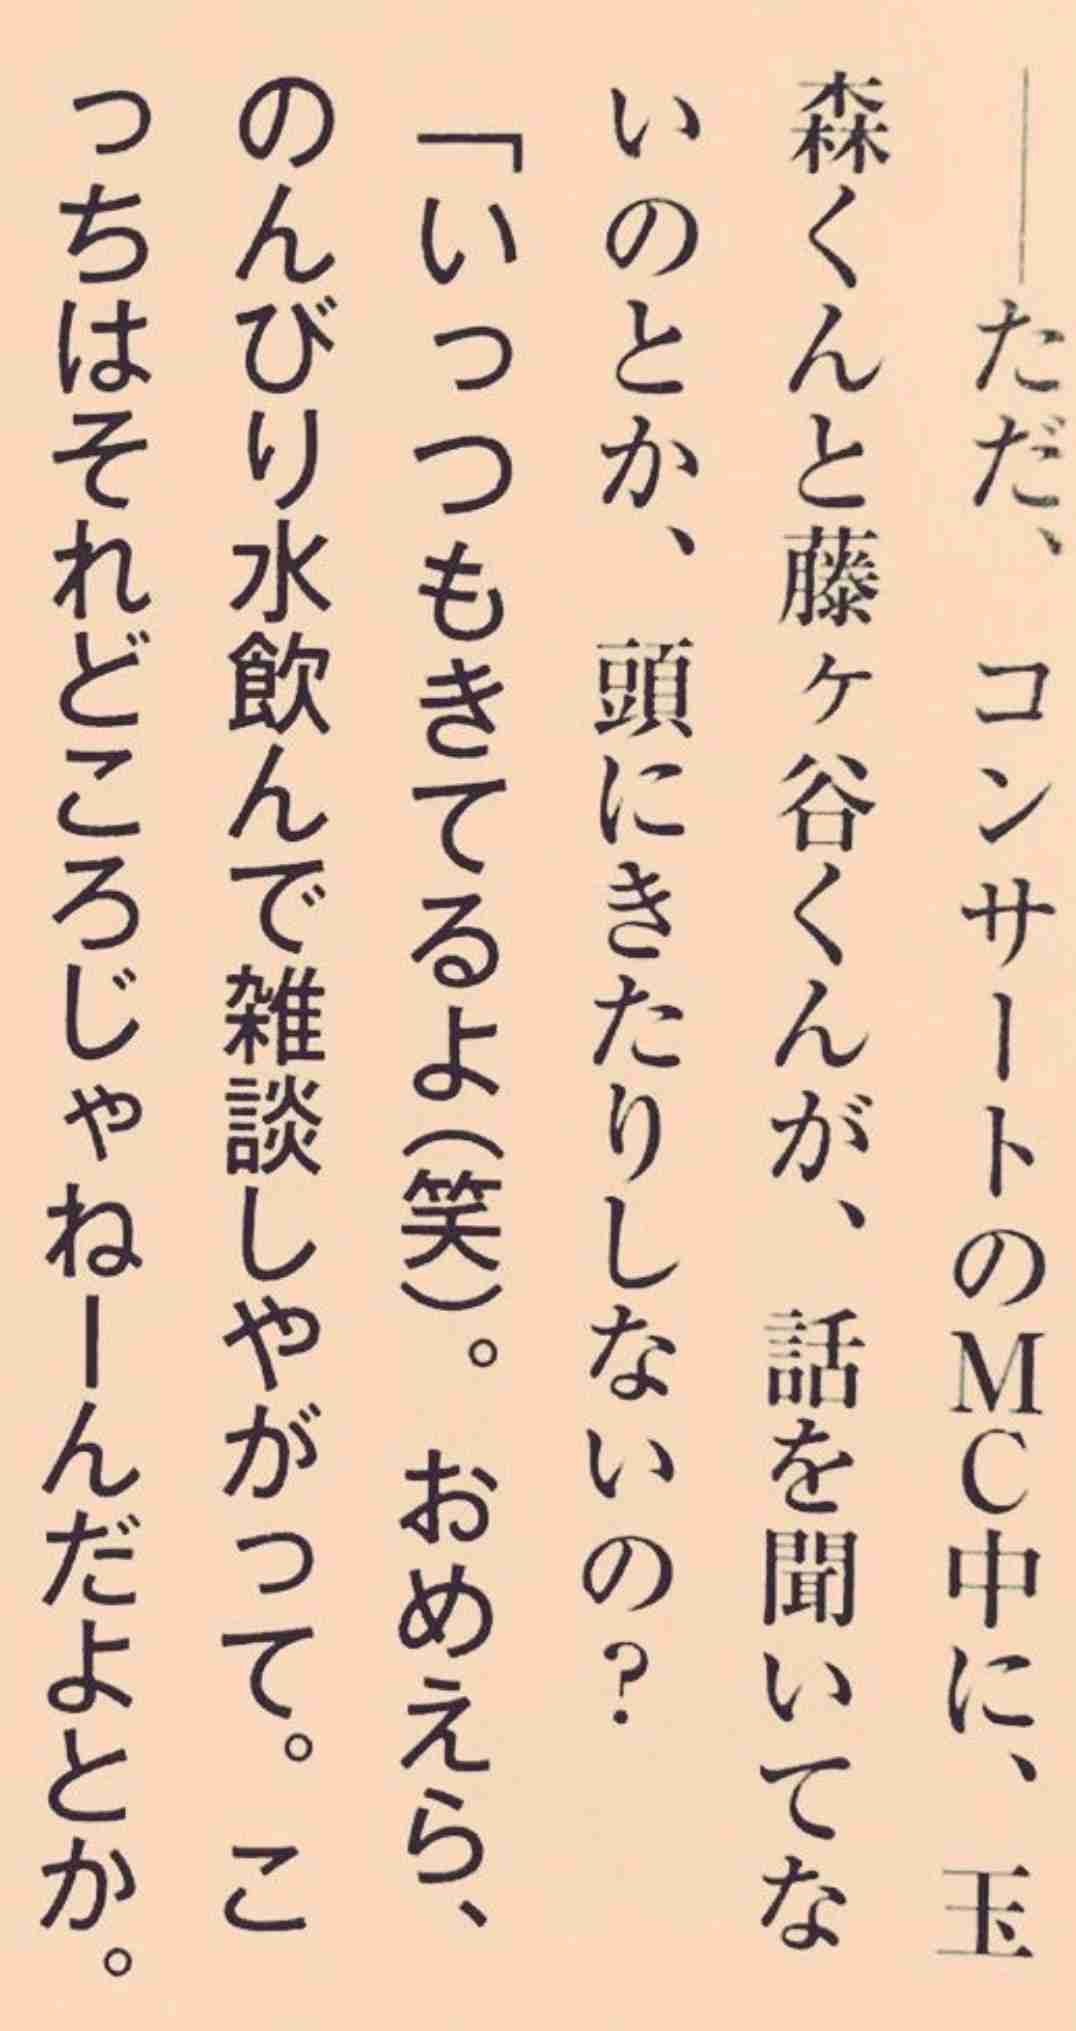 ――ただ、コンサートのMC中に、玉
森くんと藤ヶ谷くんが、話を聞いてな
いのとか、頭にきたりしないの？
「いっつもきてるよ（笑）。おめえら、
のんびり水飲んで雑談しやがって。こ
っちはそれどころじゃねーんだよとか。